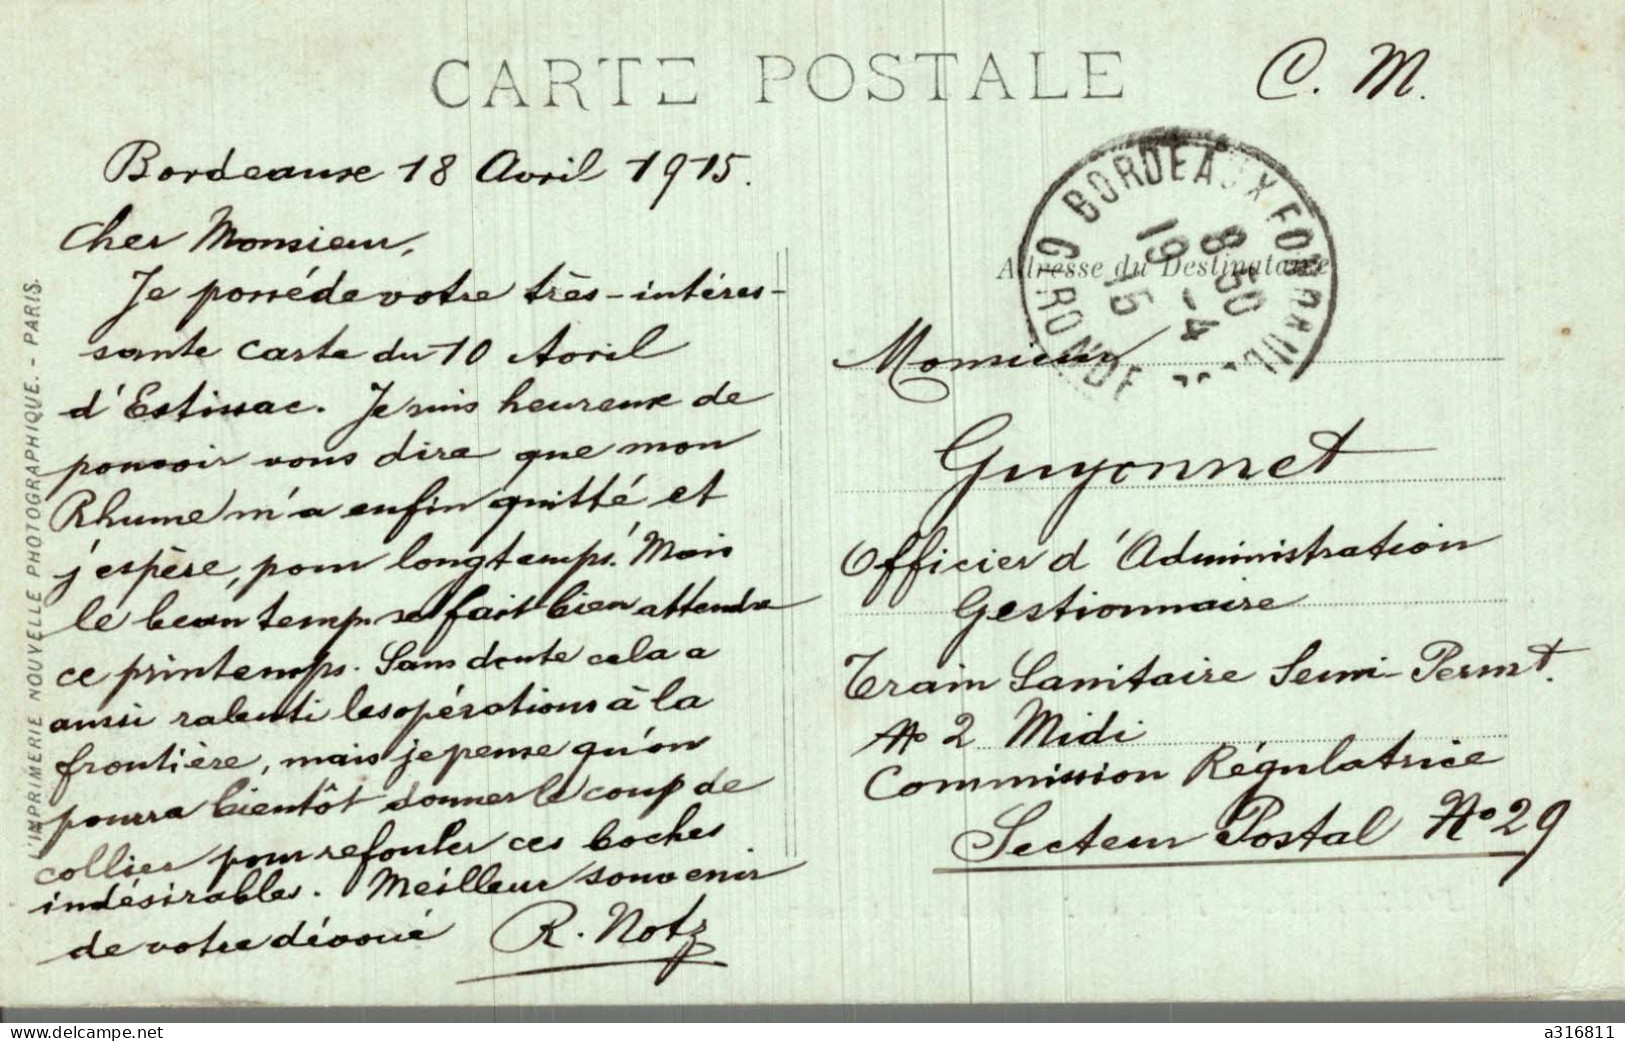 CARTE POSTALE
C. M.
Bordeaux 18 Avril 1915.
Cher Monsieur,
Je possède votre très-intéres-
sante carte du 10 Avril
d'Estissac. Je suis heureux de
pouvoir vous dire que mon
Rhume m'a enfin quitté et
j'espère, pour longtemps! Mais
le beau temps se fait bien attendre
ce printemps. Sans doute cela a
aussi ralenti les opérations à la
frontière, mais je pense qu'on
pourra bientôt donner le coup de
collier pour refouler ces boches
indésirables. Meilleur souvenir
de votre dévoué R. Notz
L'IMPRIMERIE NOUVELLE PHOTOGRAPHIQUE. - PARIS.
BORDEAUX FONDAUDEGE
GIRONDE
8 50
19 -4
15
Adresse du Destinataire
Monsieur
Guyonnet
Officier d'Administration
Gestionnaire
Train Sanitaire Semi-Permt.
No 2 Midi
Commission Régulatrice
Secteur Postal No 29
www.delcampe.net
a316811